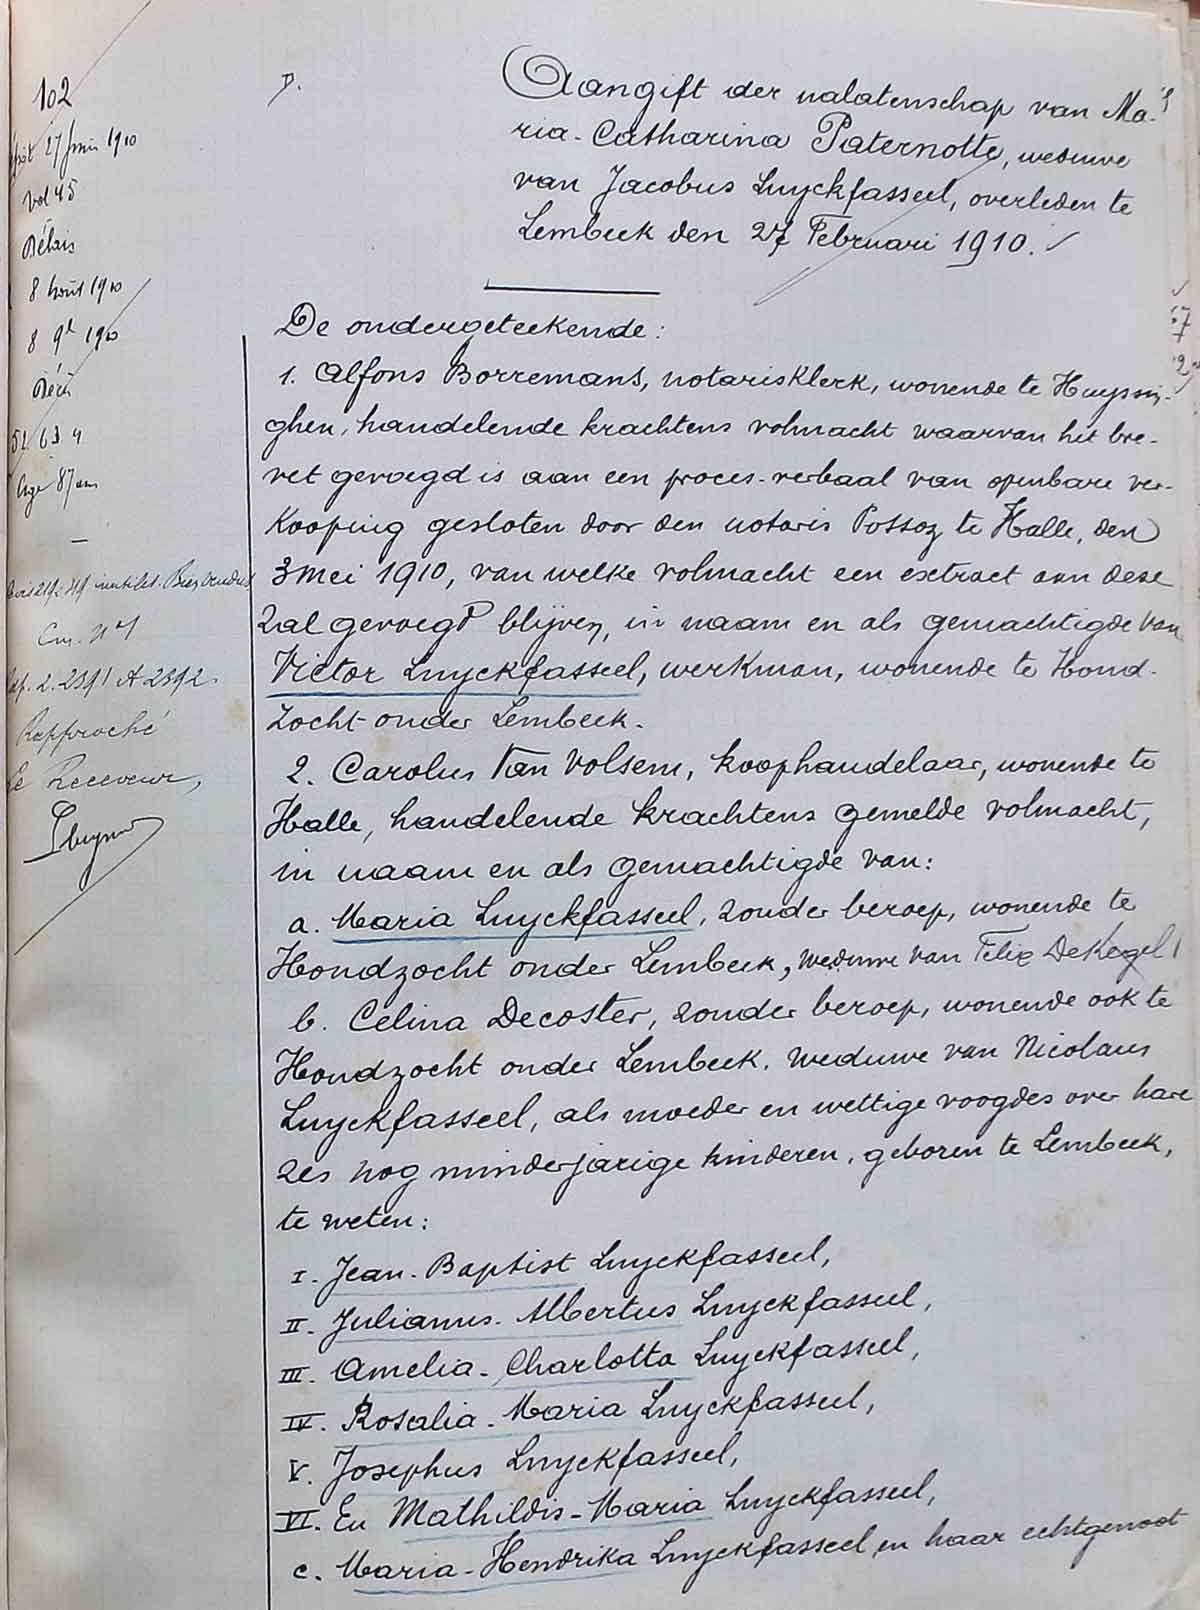 102
27 Juin 1910
Vol 45
Délais
8 Août 1910
8 9b 1910
Décès
Age 87 ans
Cons. n° 1
2391 et 2392
Rapproché
Le Receveur,
Aangift der nalatenschap van Ma-
ria-Catharina Paternotte, weduwe
van Jacobus Luyckfasseel, overleden te
Lembeek den 27 Februari 1910.
De ondergeteekende:
1. Alfons Borremans, notarisklerk, wonende te Huyssin-
ghen, handelende krachtens volmacht waarvan het bre-
vet gevoegd is aan een proces-verbaal van openbare ver-
kooping gesloten door den notaris Possoz te Halle, den
3 Mei 1910, van welke volmacht een extract aan deze
zal gevoegd blijven, in naam en als gemachtigde van
Victor Luyckfasseel, werkman, wonende te Hond-
zocht onder Lembeek.
2. Carolus Van Volsem, koophandelaar, wonende te
Halle, handelende krachtens gemelde volmacht,
in naam en als gemachtigde van:
a. Maria Luyckfasseel, zonder beroep, wonende te
Hondzocht onder Lembeek, weduwe van Felix DeKegel
b. Celina Decoster, zonder beroep, wonende ook te
Hondzocht onder Lembeek, weduwe van Nicolaus
Luyckfasseel, als moeder en wettige voogdes over hare
zes nog minderjarige kinderen, geboren te Lembeek,
te weten:
I. Jean-Baptist Luyckfasseel,
II. Julianus-Albertus Luyckfasseel,
III. Amelia-Charlotta Luyckfasseel,
IV. Rosalia-Maria Luyckfasseel,
V. Josephus Luyckfasseel,
VI. En Mathildis-Maria Luyckfasseel,
c. Maria-Hendrika Luyckfasseel en haar echtgenoot